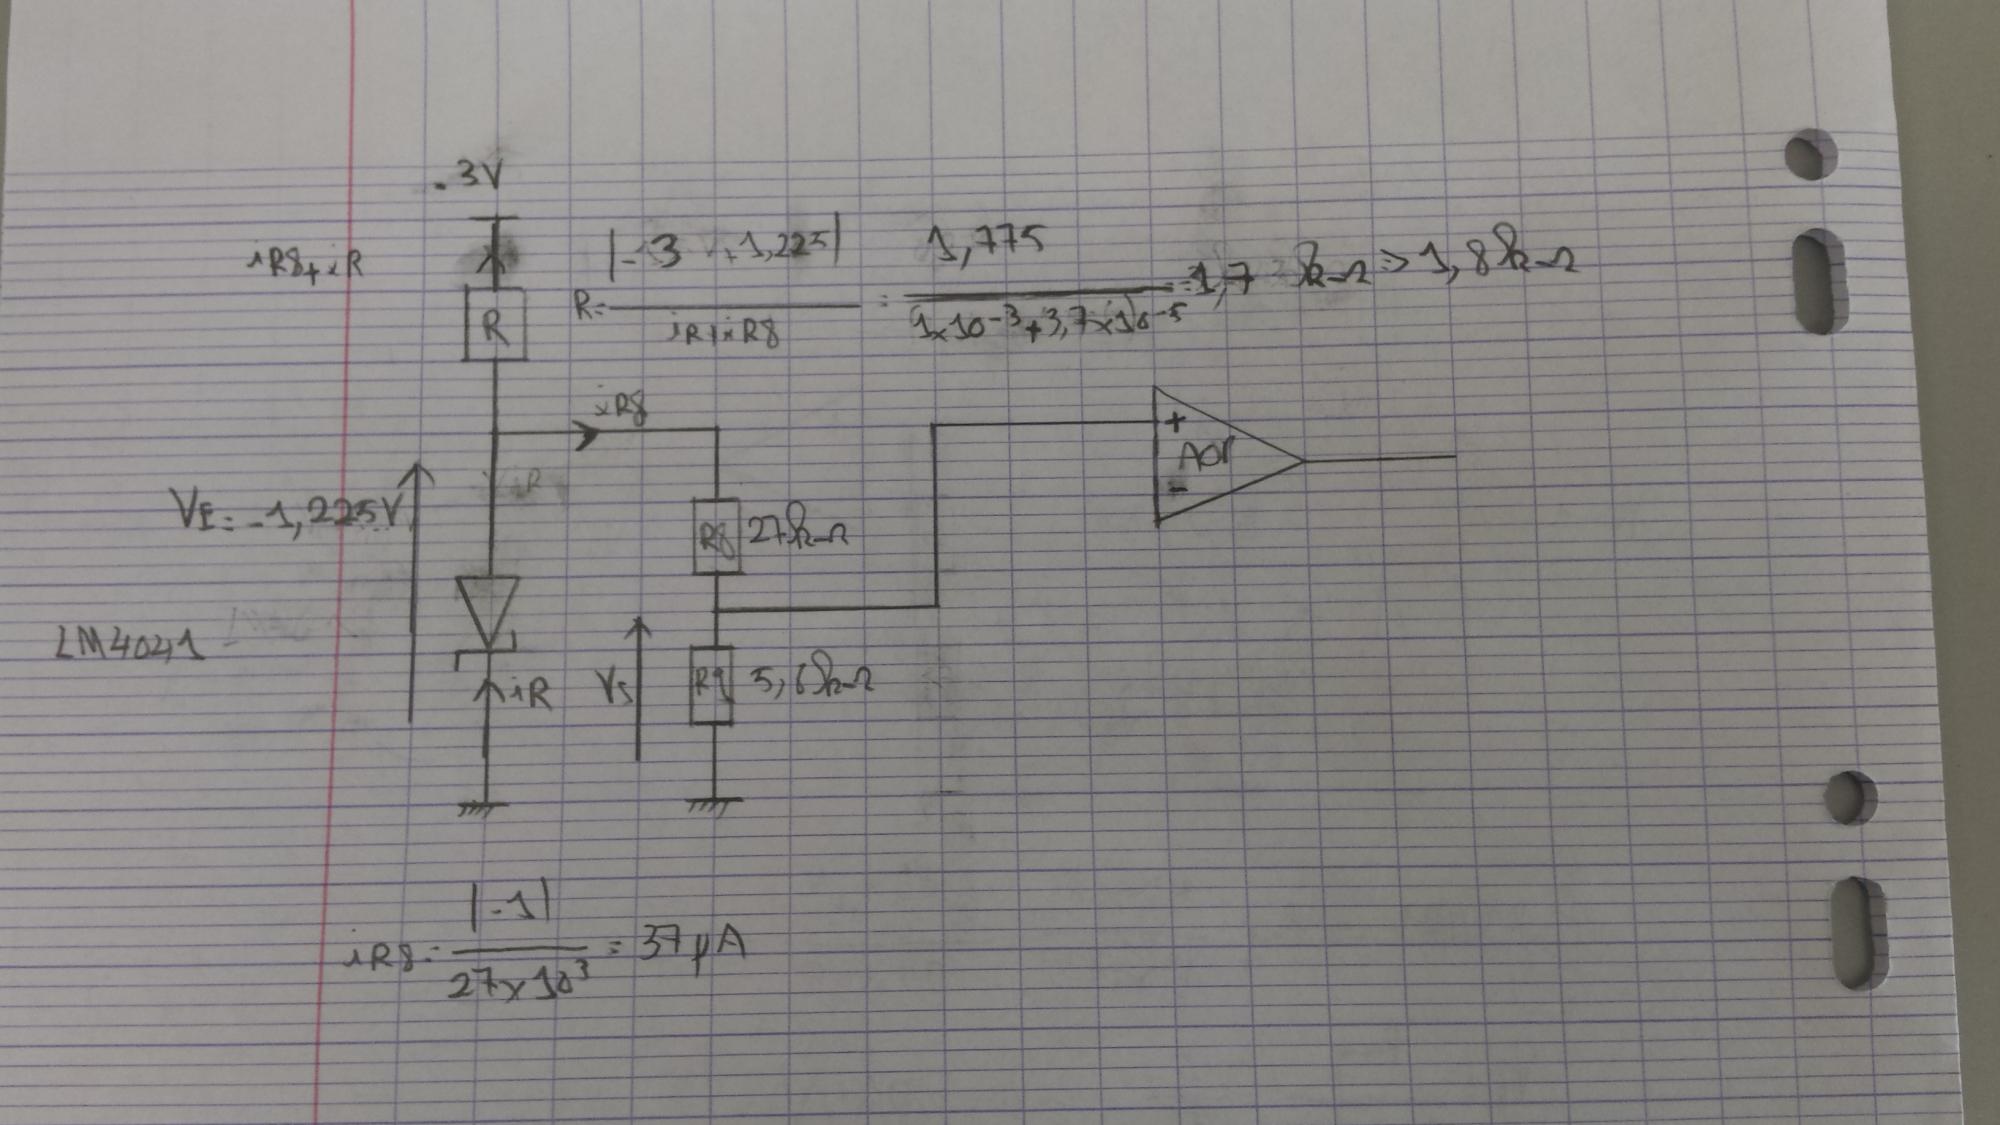 -3V
iR8+iR
R = |-3 + 1,225| / iR+iR8 = 1,775 / 1x10⁻³+3,7x10⁻⁵ = 1,7 kΩ => 1,8kΩ
R
iR8
+
AOP
-
VE = -1,225V
R8 27kΩ
LM4041
iR
Vs
R9 5,6kΩ
iR8 = |-1| / 27x10³ = 37µA